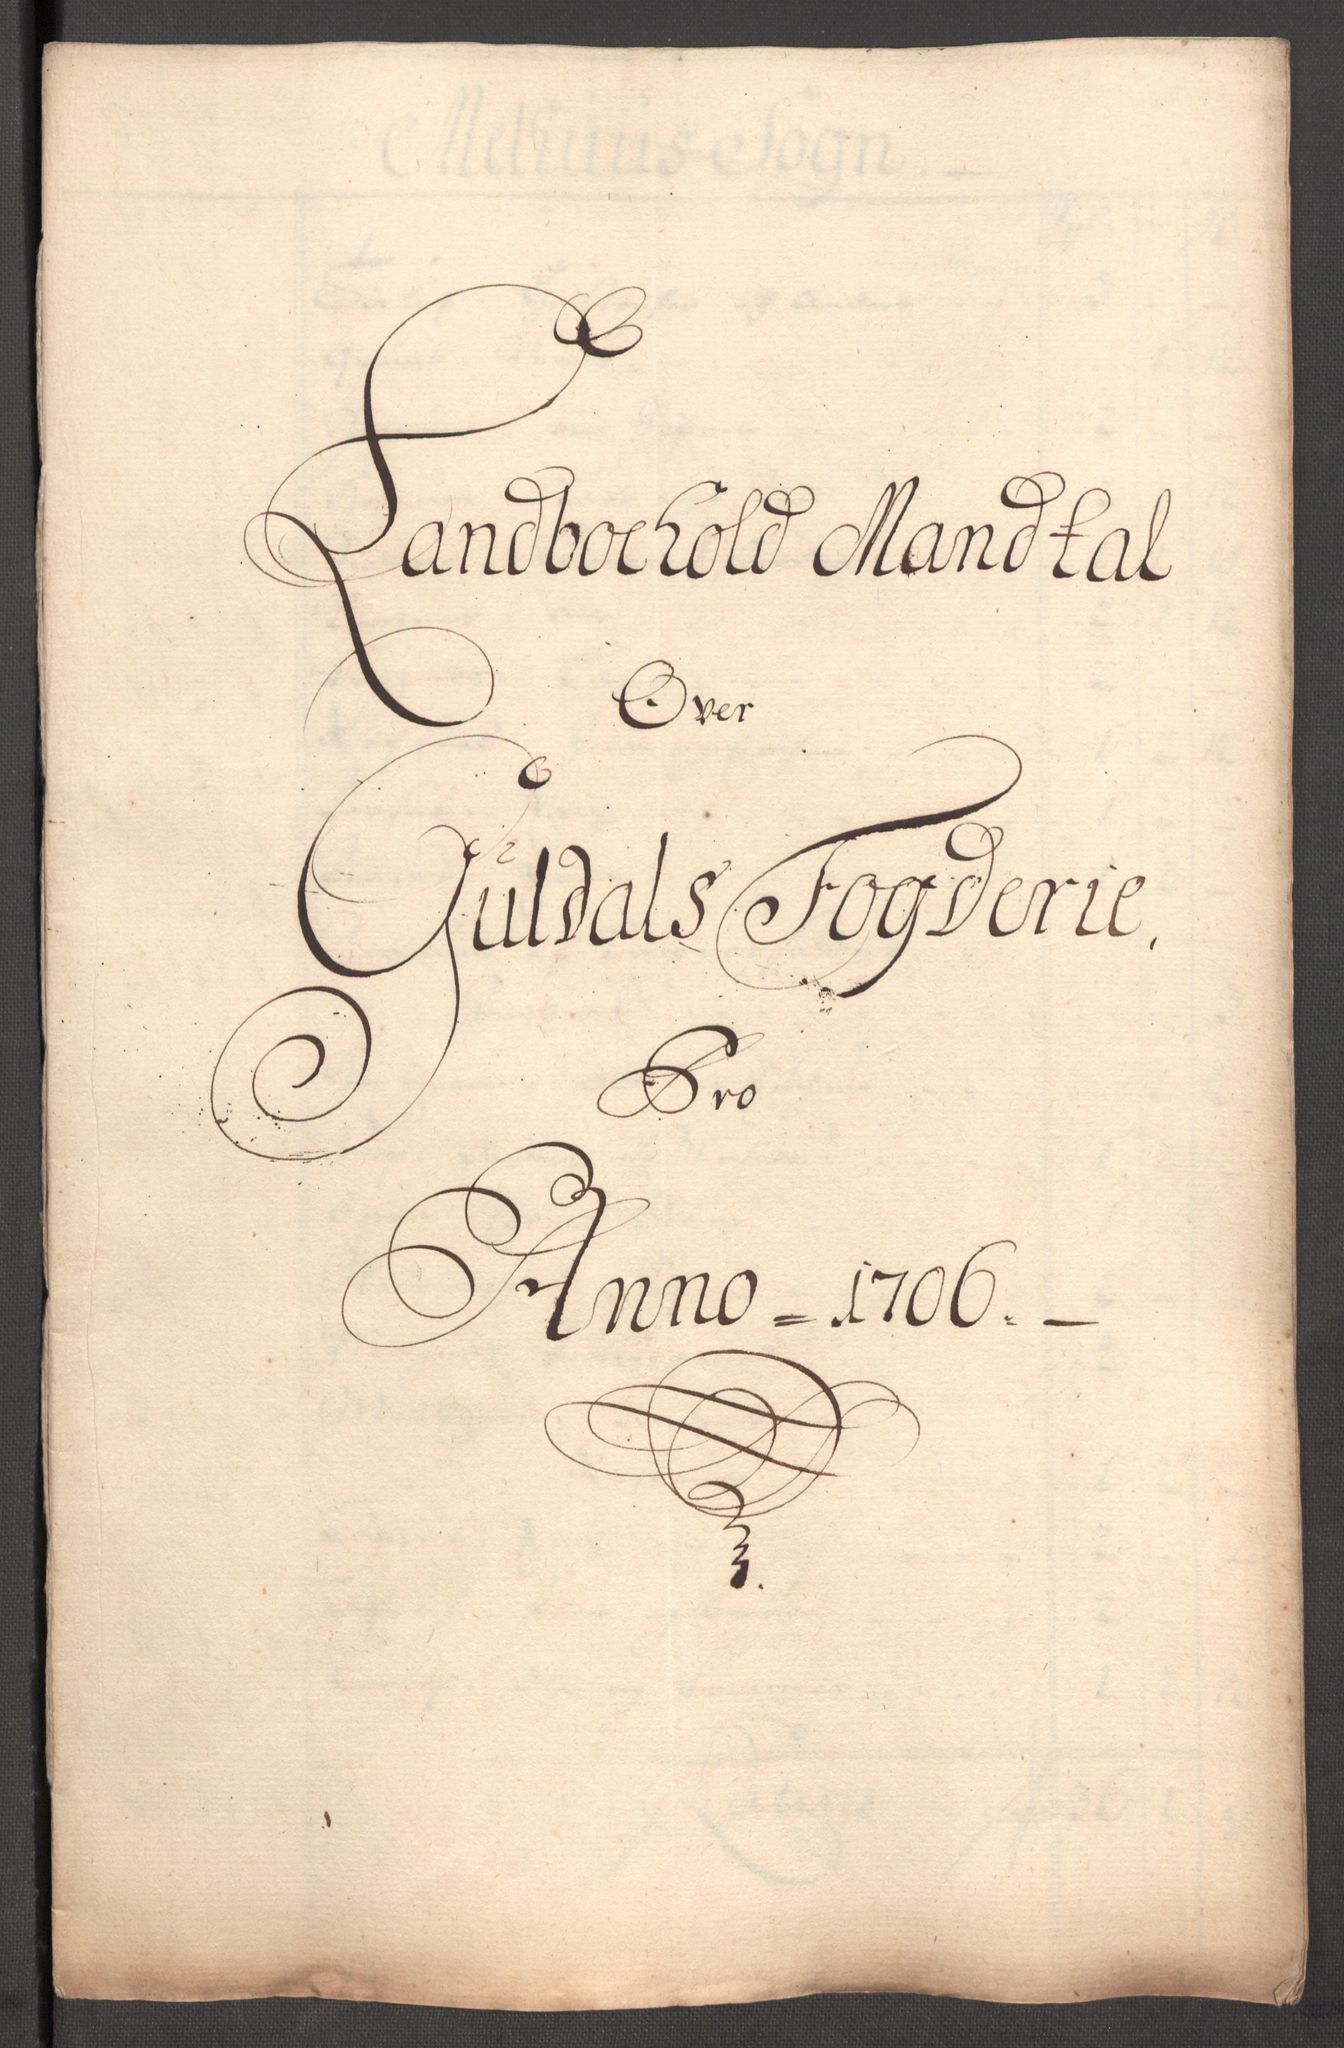 Landboehold Mandtal
Over
Guldals Fogderie.
Pro
Anno = 1706. —